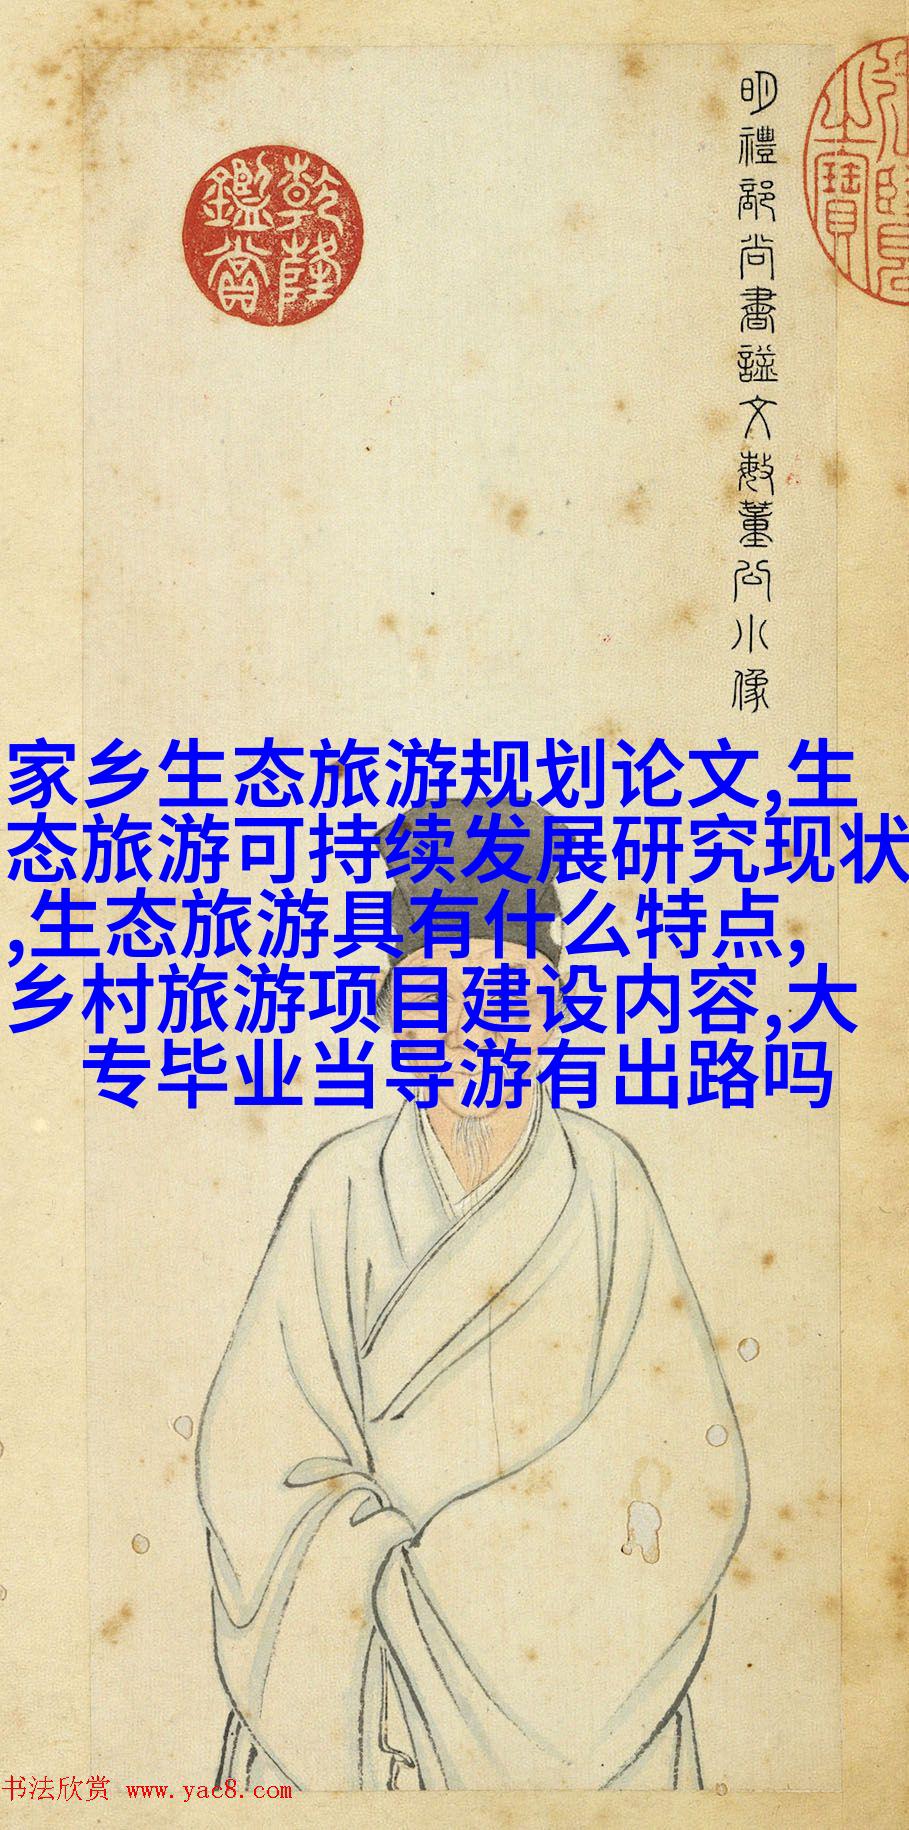 明禮部尚書謚文敏董公小像
乾隆
鑑賞
之寶
家乡生态旅游规划论文,生
态旅游可持续发展研究现状
,生态旅游具有什么特点,
乡村旅游项目建设内容,大
专毕业当导游有出路吗
书法欣赏 www.yac8.com